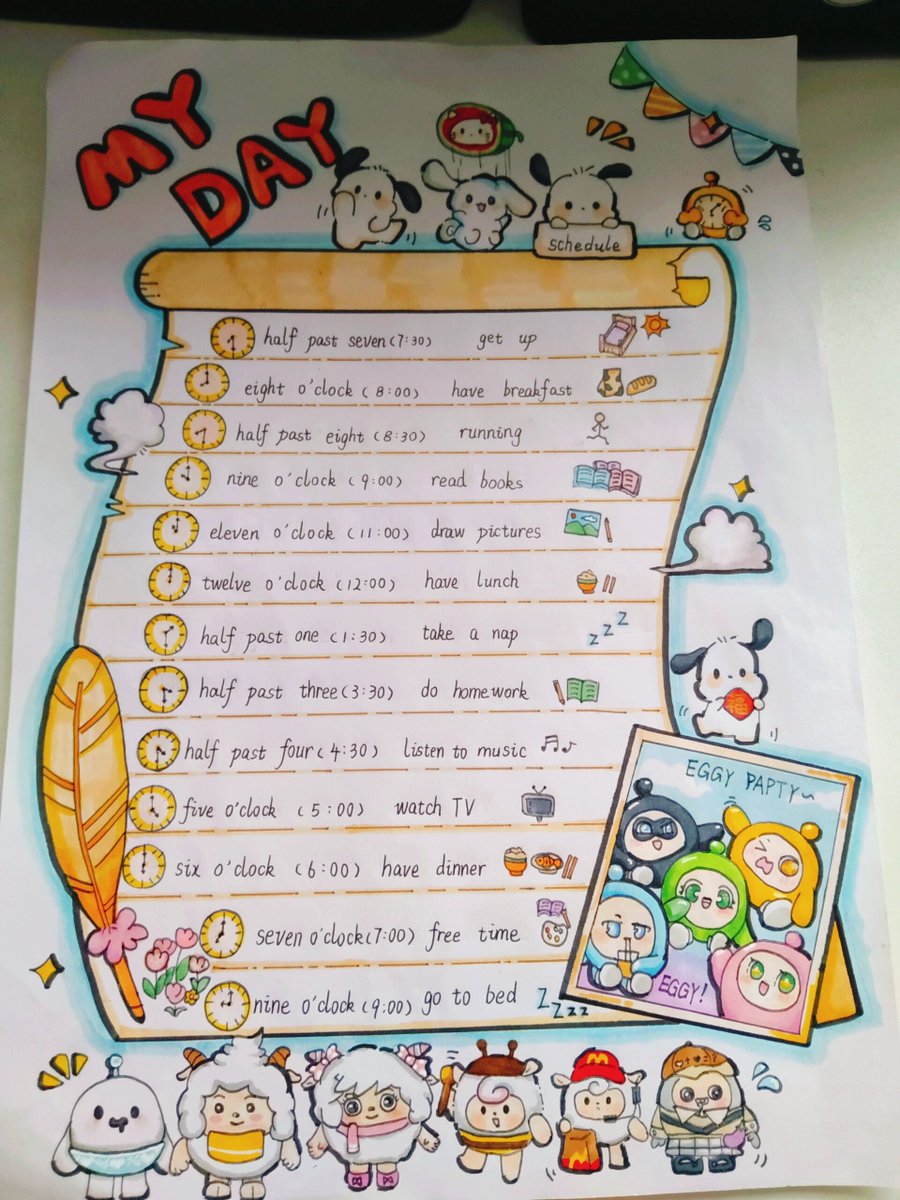 MY
DAY
schedule
half past seven (7:30) get up
eight o'clock (8:00) have breakfast
half past eight (8:30) running
nine o'clock (9:00) read books
eleven o'clock (11:00) draw pictures
twelve o'clock (12:00) have lunch
half past one (1:30) take a nap
half past three (3:30) do homework
half past four (4:30) listen to music
five o'clock (5:00) watch TV
six o'clock (6:00) have dinner
seven o'clock (7:00) free time
nine o'clock (9:00) go to bed
z z z
Z Z z z
福
EGGY PAPTY~
EGGY!
M
M